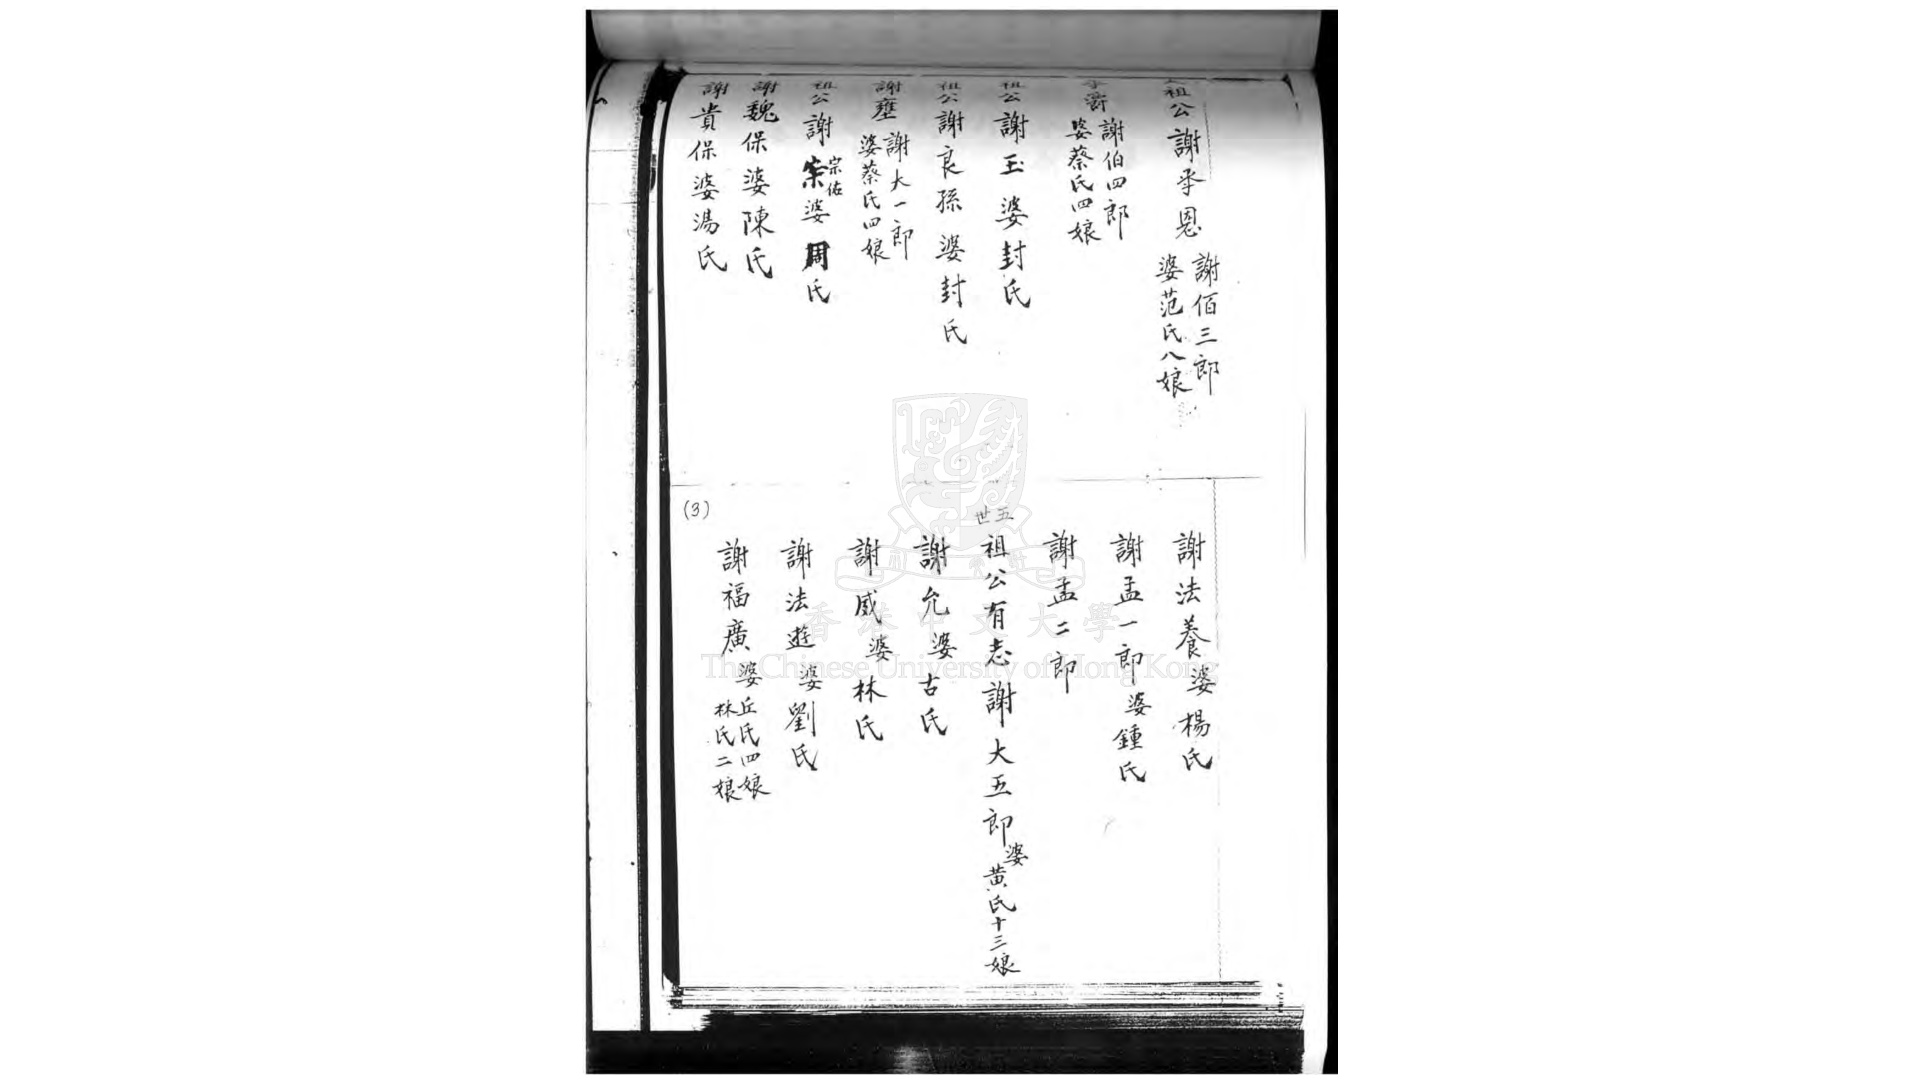 祖公謝承恩 謝佰三郎 婆范氏八娘
謝伯四郎 婆蔡氏四娘
祖公謝玉婆封氏
祖公謝良孫婆封氏
謝壅 謝大一郎 婆蔡氏四娘
祖公謝宗 宗佑 婆周氏
謝魏保婆陳氏
謝貴保婆湯氏
謝法養婆楊氏
謝孟一郎婆鍾氏
謝孟二郎
五世
祖公有志謝大五郎婆黃氏十三娘
謝允婆古氏
謝威婆林氏
謝法遊婆劉氏
謝福廣婆丘氏四娘 林氏二娘
(3)
香港中文大學
The Chinese University of Hong Kong